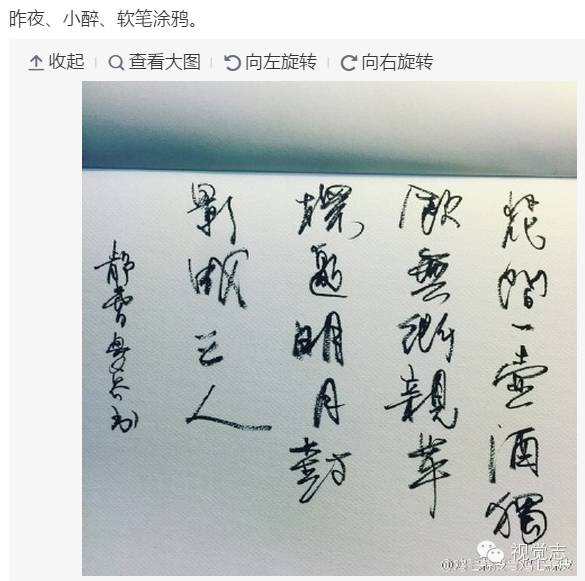 昨夜、小醉、软笔涂鸦。
收起 查看大图 向左旋转 向右旋转
花間一壺酒獨
飲無所親举
邀明月對
影成三人
视觉志